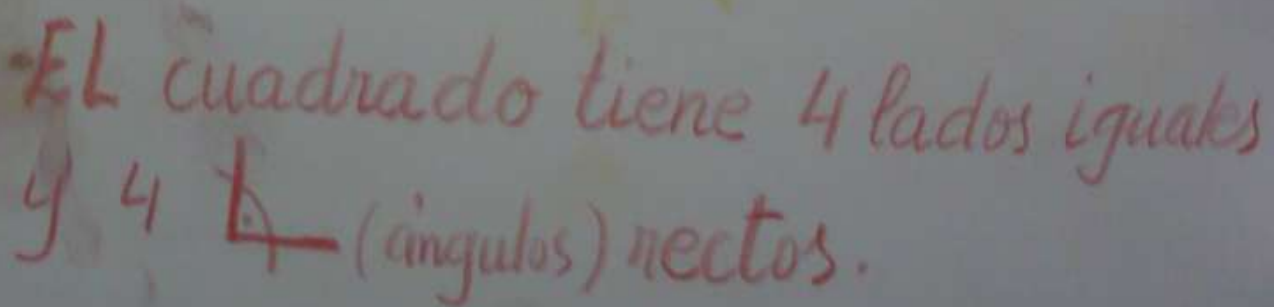 EL cuadrado tiene 4 lados iguales
y 4 (ángulos) rectos.